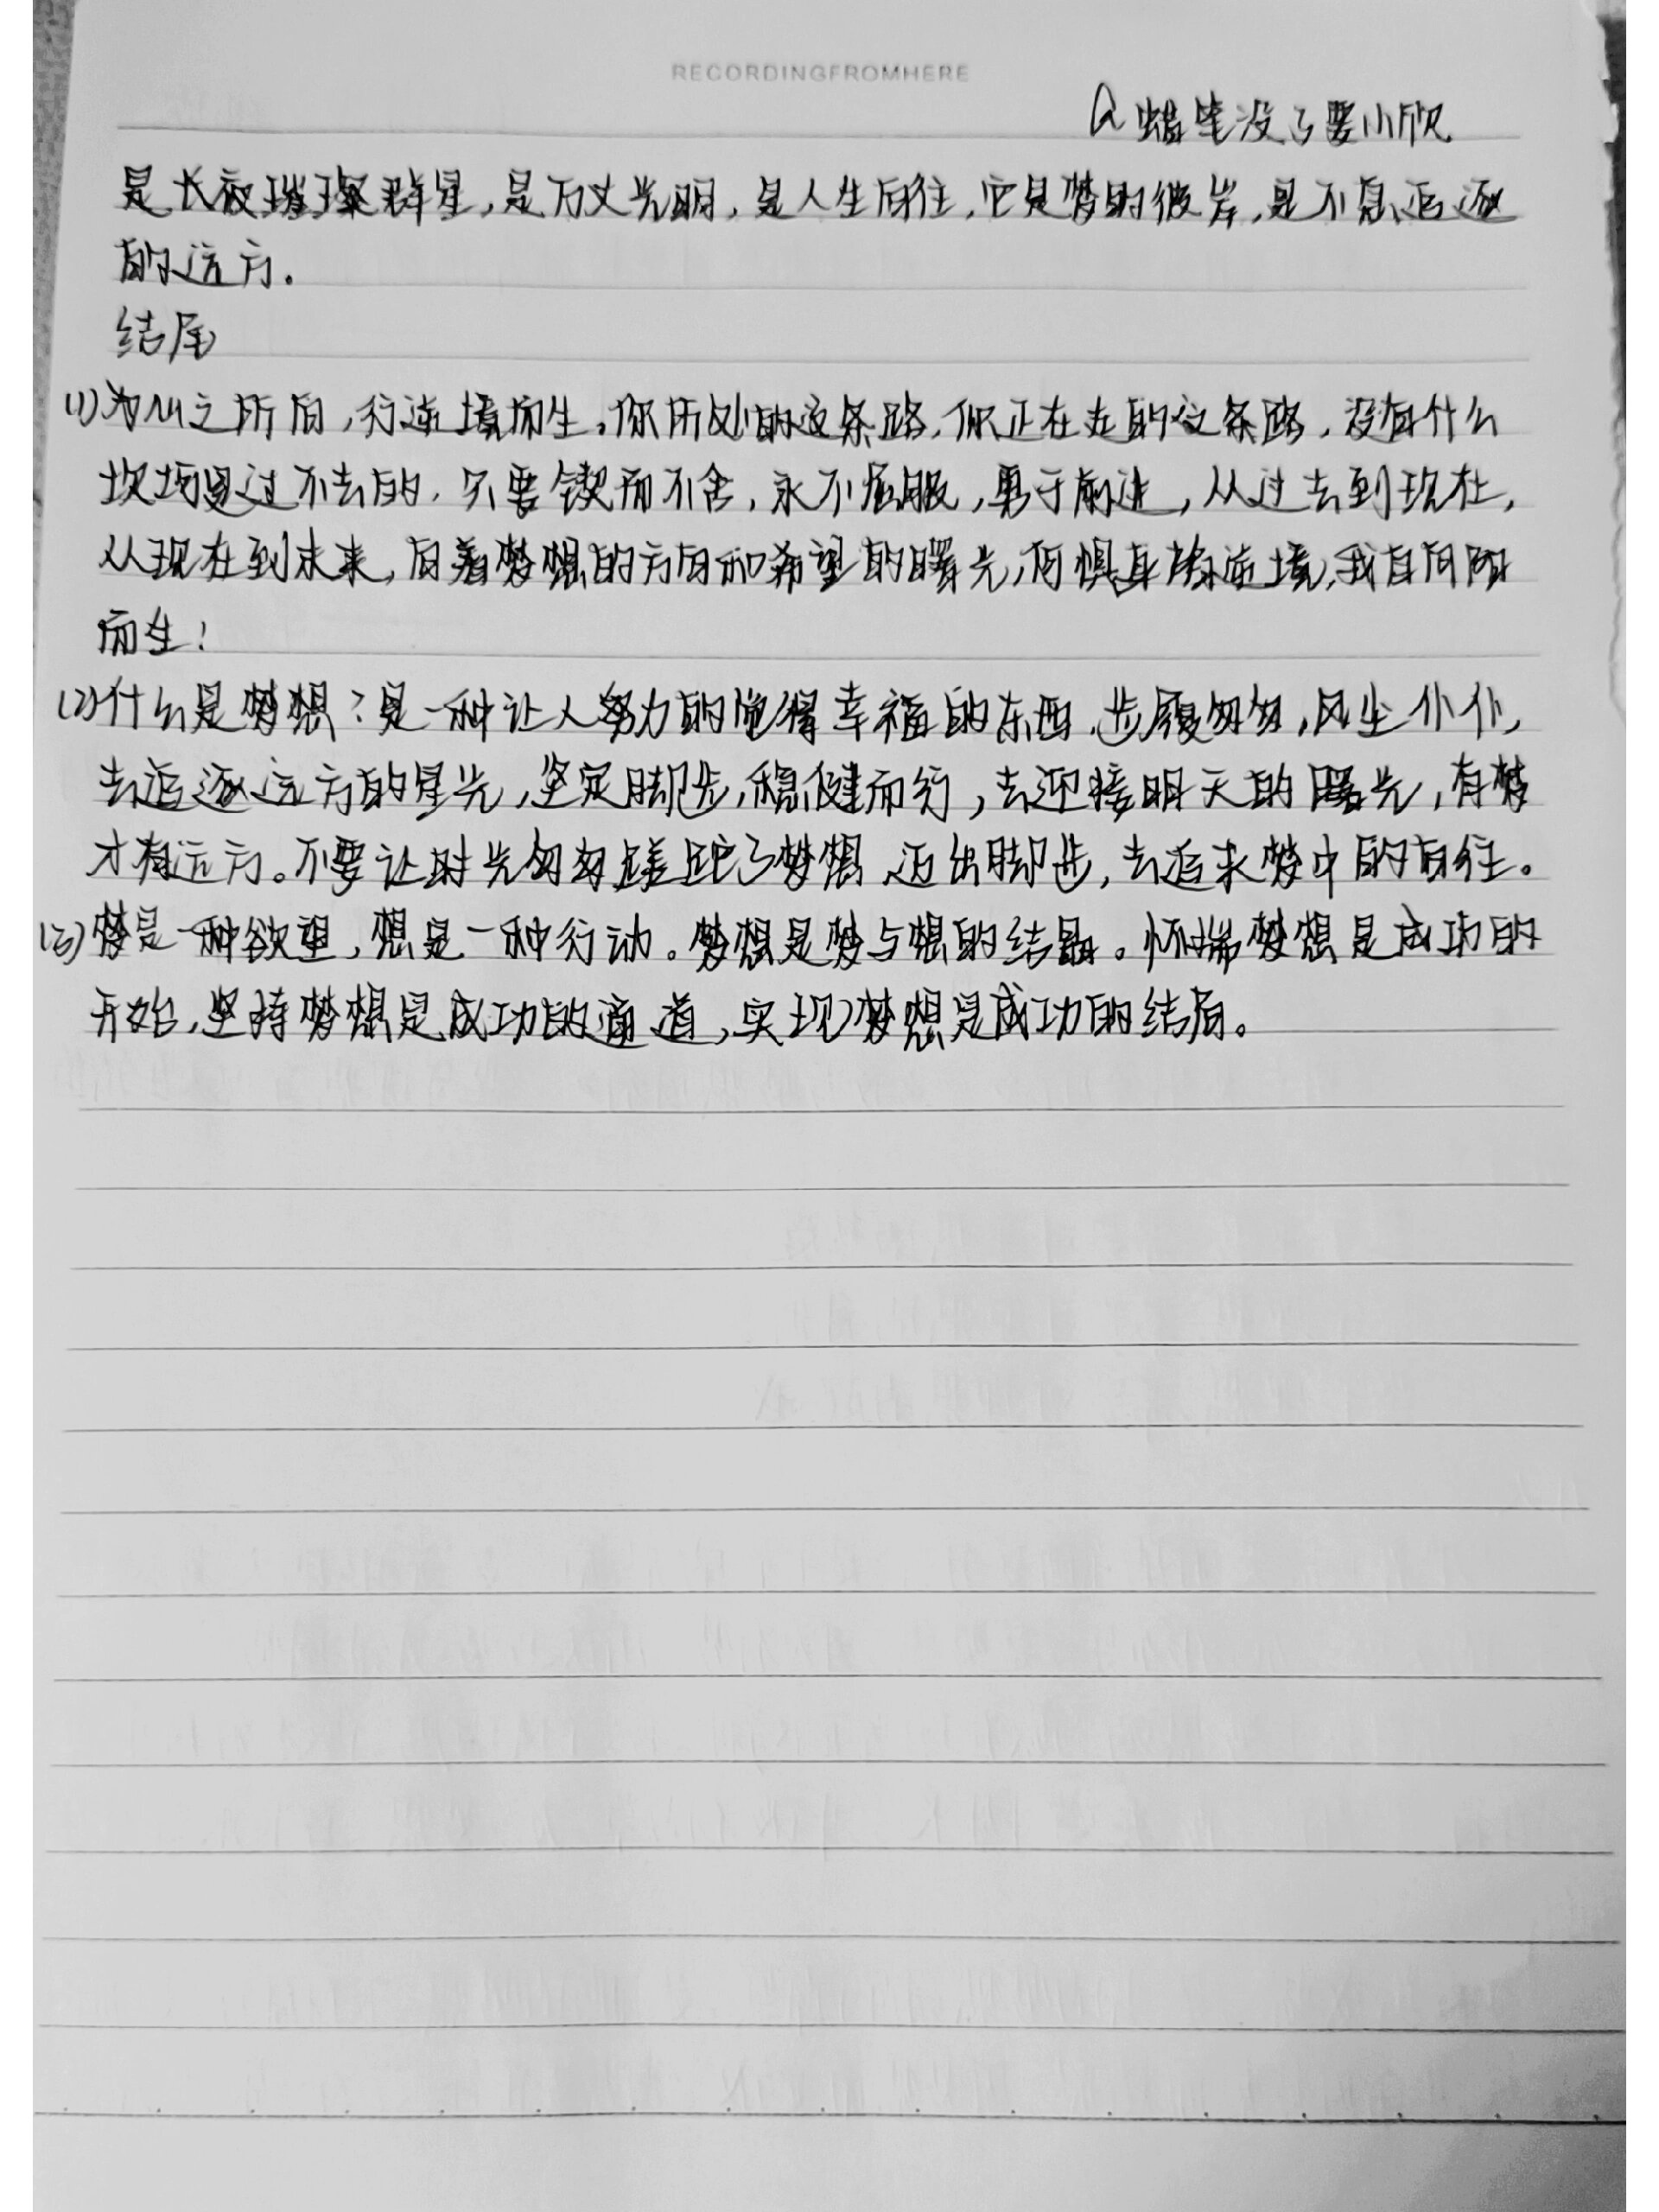 RECORDINGFROMHERE
@蜡笔没了要小欣
是长夜璀璨群星,是万丈光明,是人生向往,它是梦的彼岸,是不息追逐
的远方。
结尾
(1)为心之所向,行逆境而生。你所处的这条路,你正在走的这条路,没有什么
坎坷是过不去的,只要锲而不舍,永不屈服,勇于前进,从过去到现在,
从现在到未来,向着梦想的方向和希望的曙光,何惧身陷逆境,我自向阳
而生!
(2)什么是梦想?是一种让人努力的觉得幸福的东西,步履匆匆,风尘仆仆,
去追逐远方的星光,坚定脚步,稳健而行,去迎接明天的曙光,有梦
才有远方。不要让时光匆匆蹉跎了梦想,迈出脚步,去追求梦中的向往。
(3)梦是一种欲望,想是一种行动。梦想是梦与想的结晶。怀揣梦想是成功的
开始,坚持梦想是成功的通道,实现梦想是成功的结局。